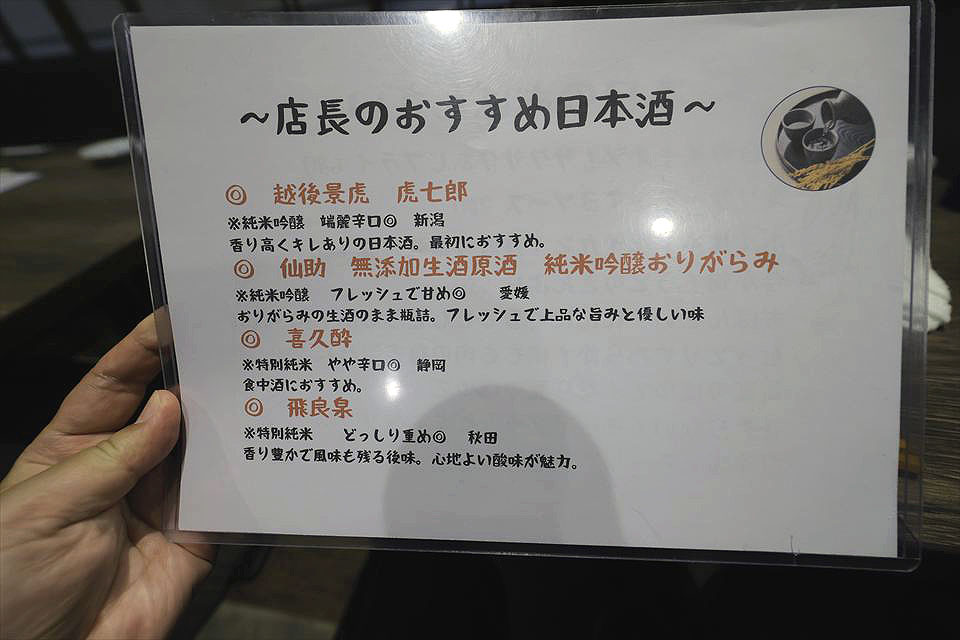 ～店長のおすすめ日本酒～
◎ 越後景虎 虎七郎
※純米吟醸 端麗辛口◎ 新潟
香り高くキレありの日本酒。最初におすすめ。
◎ 仙助 無添加生酒原酒 純米吟醸おりがらみ
※純米吟醸 フレッシュで甘め◎ 愛媛
おりがらみの生酒のまま瓶詰。フレッシュで上品な旨みと優しい味
◎ 喜久酔
※特別純米 やや辛口◎ 静岡
食中酒におすすめ。
◎ 飛良泉
※特別純米 どっしり重め◎ 秋田
香り豊かで風味も残る後味。心地よい酸味が魅力。